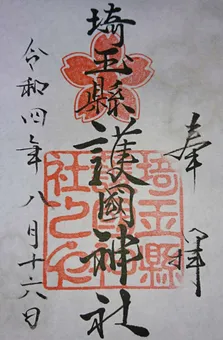 奉拝
埼玉縣護國神社
埼玉縣護國神社之印
令和四年八月十六日